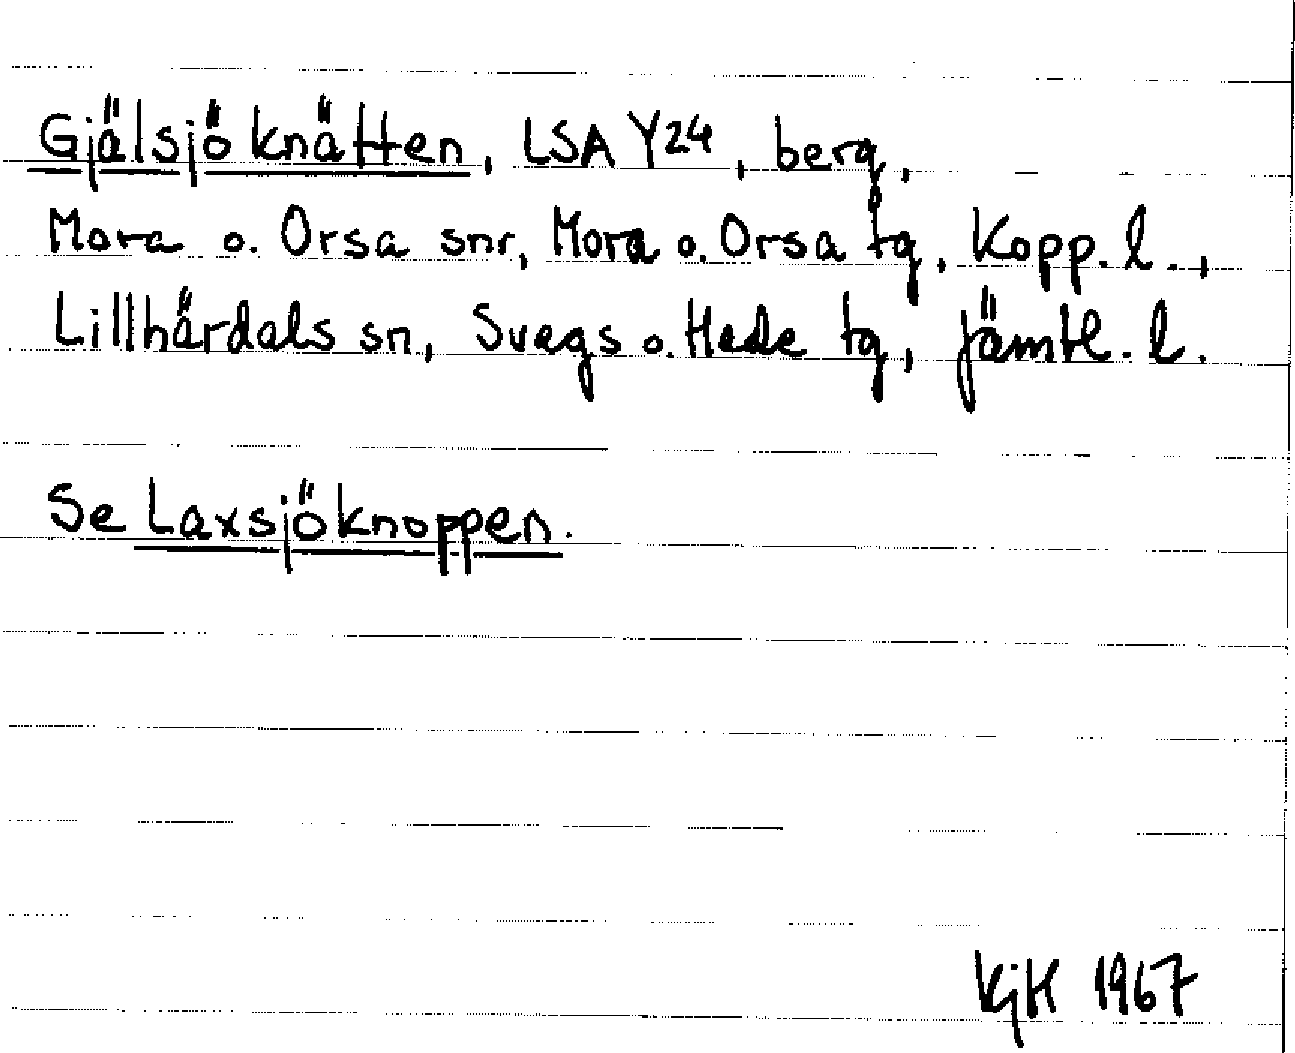 Gjälsjöknätten, LSA Y24, berg,
Mora o. Orsa snr, Mora o. Orsa tg, Kopp. l.,
Lillhärdals sn, Svegs o. Hede tg, Jämtl. l.
Se Laxsjöknoppen.
KjH 1967